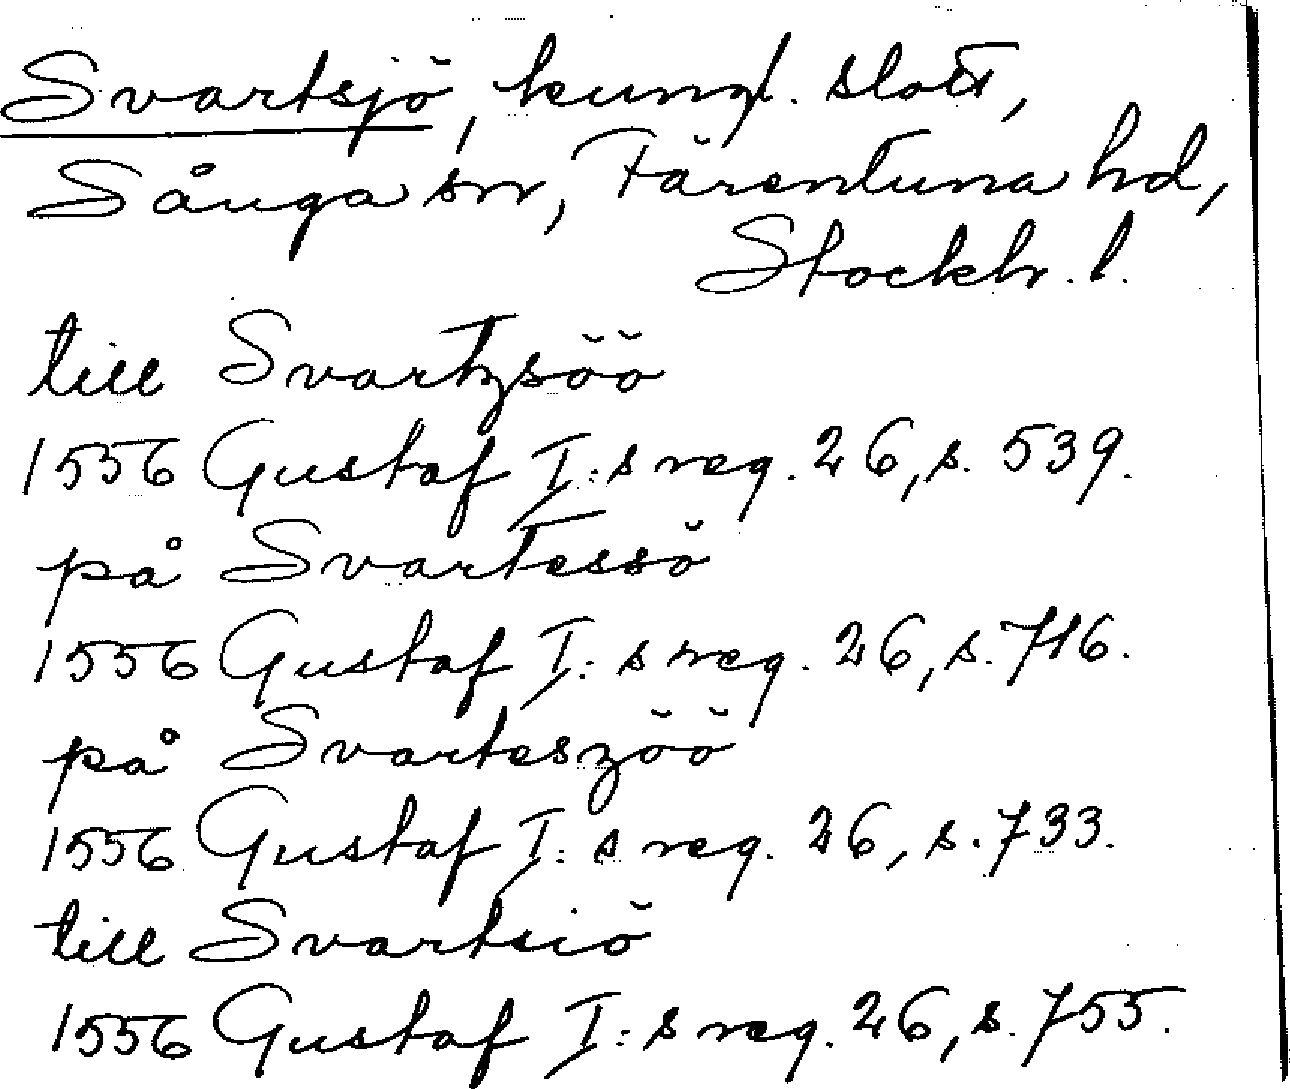 Svartsjö, kungl. slott,
Sånga sn, Färentuna hd,
Stockh. l.
till Svartzsöö
1556 Gustaf I:s reg. 26, s. 539.
på Svartessö
1556 Gustaf I:s reg. 26, s. 716.
på Svarteszöö
1556 Gustaf I:s reg. 26, s. 733.
till Svartsiö
1556 Gustaf I:s reg. 26, s. 755.